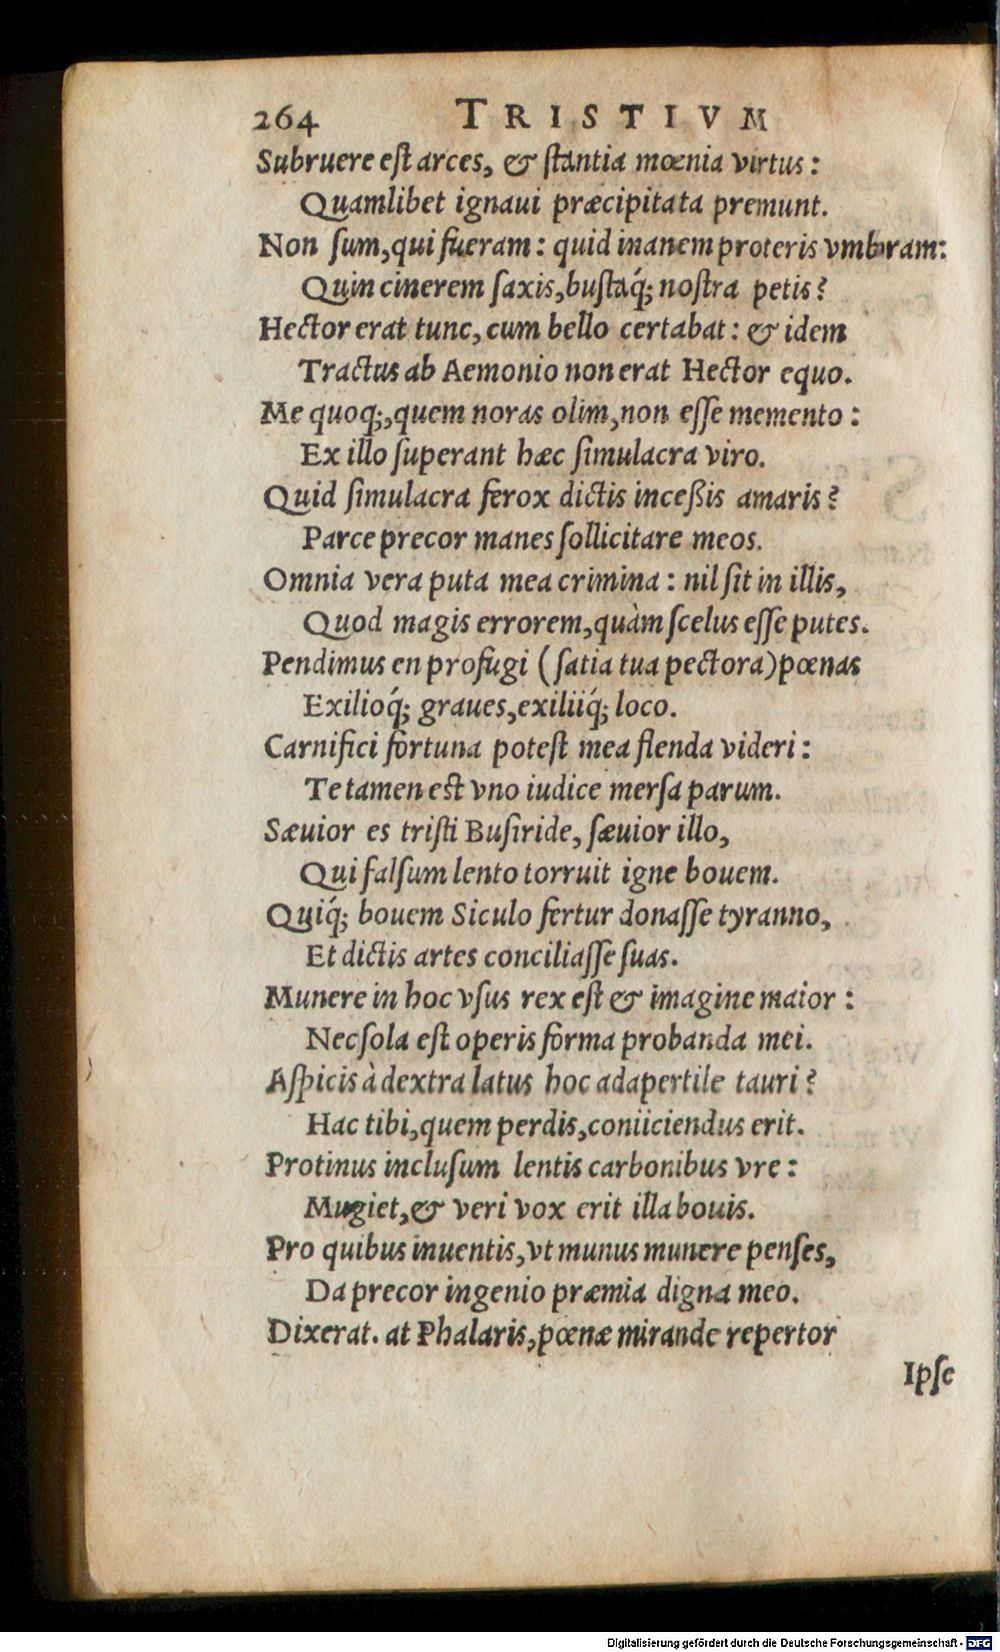 264 TRISTIVM
Subruere eſt arces, & ſtantia mœnia virtus:
Quamlibet ignaui præcipitata premunt.
Non ſum, qui fueram: quid inanem proteris vmbram:
Quin cinerem ſaxis, buſtaq́; noſtra petis?
Hector erat tunc, cum bello certabat: & idem
Tractus ab Aemonio non erat Hector equo.
Me quoq;, quem noras olim, non eſſe memento:
Ex illo ſuperant hæc ſimulacra viro.
Quid ſimulacra ferox dictis inceßis amaris?
Parce precor manes ſollicitare meos.
Omnia vera puta mea crimina: nil ſit in illis,
Quod magis errorem, quàm ſcelus eſſe putes.
Pendimus en profugi (ſatia tua pectora) pœnas
Exilioq́; graues, exiliiq́; loco.
Carnifici fortuna poteſt mea flenda videri:
Te tamen eſt vno iudice merſa parum.
Sæuior es triſti Buſiride, ſæuior illo,
Qui falſum lento torruit igne bouem.
Quiq́; bouem Siculo fertur donaſſe tyranno,
Et dictis artes conciliaſſe ſuas.
Munere in hoc vſus rex eſt & imagine maior:
Nec ſola eſt operis forma probanda mei.
Aſpicis à dextra latus hoc adapertile tauri?
Hac tibi, quem perdis, coniiciendus erit.
Protinus incluſum lentis carbonibus vre:
Mugiet, & veri vox erit illa bouis.
Pro quibus inuentis, vt munus munere penſes,
Da precor ingenio præmia digna meo.
Dixerat. at Phalaris, pœnæ mirande repertor
Ipſe
Digitalisierung gefördert durch die Deutsche Forschungsgemeinschaft - DFG